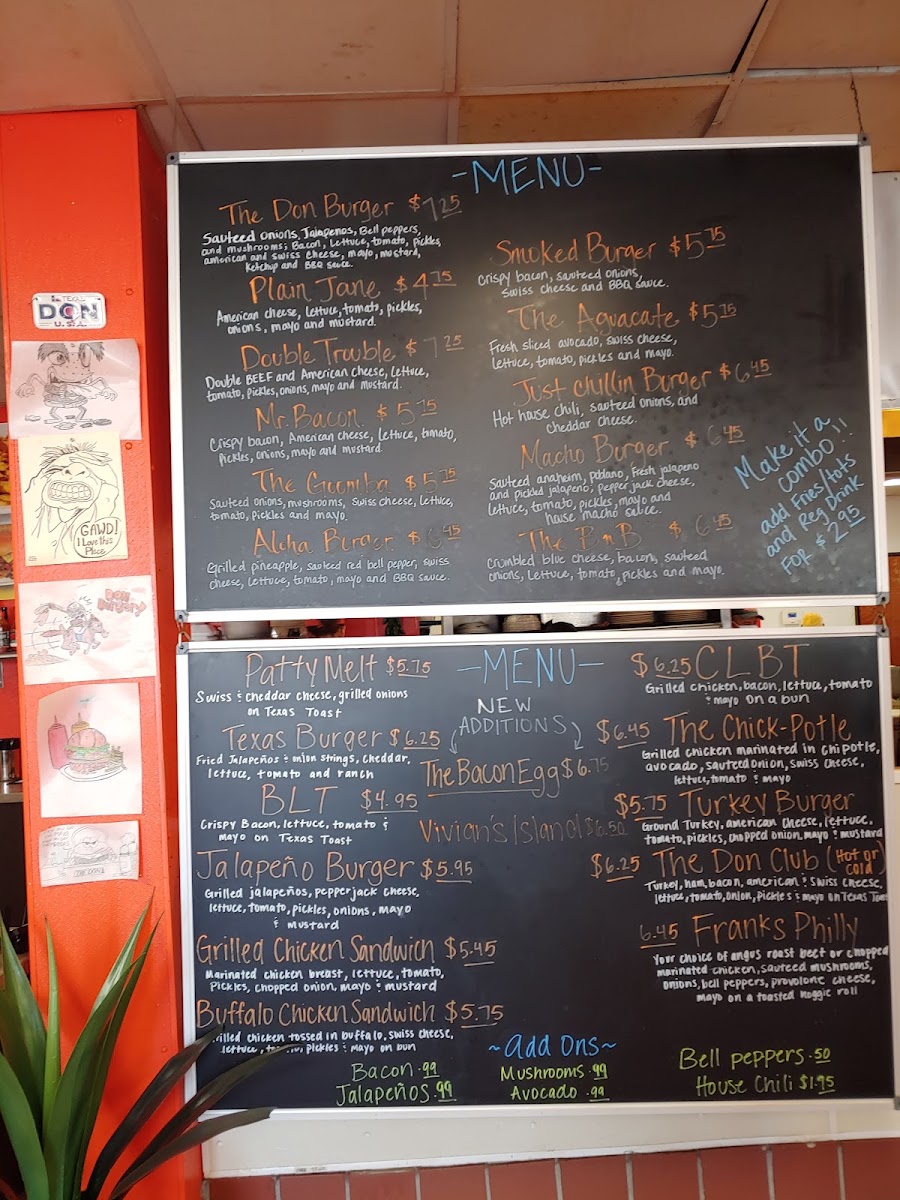 -MENU-
The Don Burger $7.25
Sauteed onions, Jalapenos, Bell peppers,
and mushrooms; Bacon, Lettuce, tomato, pickles,
american and swiss cheese, mayo, mustard,
ketchup and BBQ sauce.
Plain Jane $4.75
American cheese, lettuce, tomato, pickles,
onions, mayo and mustard.
Double Trouble $7.25
Double BEEF and American cheese, lettuce,
tomato, pickles, onions, mayo and mustard.
Mr. Bacon $5.75
Crispy bacon, American cheese, Lettuce, tomato,
Pickles, onions, mayo and mustard
The Goomba $5.75
Sauteed onions, mushrooms, swiss cheese, lettuce,
tomato, Pickles and mayo.
Aloha Burger $6.45
Grilled pineapple, sauteed red bell pepper, swiss
cheese, lettuce, tomato, mayo and BBQ sauce.
Smoked Burger $5.75
crispy bacon, sauteed onions,
swiss cheese and BBQ sauce.
The Aguacate $5.75
Fresh sliced avocado, swiss cheese,
lettuce, tomato, pickles and mayo.
Just chillin Burger $6.45
Hot house chili, sauteed onions, and
cheddar cheese.
Macho Burger $6.45
Sauteed anaheim, poblano, fresh jalapeno
and pickled jalapeno, pepper jack cheese,
lettuce, tomato, pickles, mayo and
house macho sauce.
The BnB $6.45
crumbled blue cheese, bacon, sauteed
onions, Lettuce, tomato, pickles and mayo.
Make it a
combo!!
add Fries/tots
and Reg Drink
FOR $2.95
TEXAS
DON
U.S.A.
GAWD!
I Love this
Place
Don
Burgery
-MENU-
NEW
ADDITIONS
The Bacon Egg $6.75
Vivian's Island $6.50
Patty Melt $5.75
Swiss & cheddar cheese, grilled onions
on Texas Toast
Texas Burger $6.25
Fried Jalapeños & onion strings, cheddar,
lettuce, tomato and ranch
BLT $4.95
Crispy Bacon, lettuce, tomato &
mayo on Texas Toast
Jalapeño Burger $5.95
Grilled jalapeños, pepperjack cheese,
lettuce, tomato, pickles, onions, mayo
& mustard
Grilled Chicken Sandwich $5.45
Marinated chicken breast, lettuce, tomato,
Pickles, chopped onion, mayo & mustard
Buffalo Chicken Sandwich $5.75
chicken tossed in buffalo, swiss cheese,
lettuce, pickles & mayo on bun
$6.25 CLBT
Grilled chicken, bacon, lettuce, tomato
& mayo on a bun
$6.45 The Chick-Potle
Grilled chicken marinated in chipotle,
avocado, sauteed onion, swiss cheese,
lettuce, tomato & mayo
$5.75 Turkey Burger
Ground Turkey, american cheese, lettuce,
tomato, pickles, chopped onion, mayo & mustard
$6.25 The Don Club (Hot or
cold)
Turkey, ham, bacon, american & Swiss cheese,
lettuce, tomato, onion, pickles & mayo on Texas Toast
6.45 Franks Philly
Your choice of angus roast beef or chopped
marinated chicken, sauteed mushrooms,
onions, bell peppers, provolone cheese,
mayo on a toasted hoggie roll
~Add Ons~
Bacon .99
Jalapeños .99
Mushrooms .99
Avocado .99
Bell peppers .50
House Chili $1.95